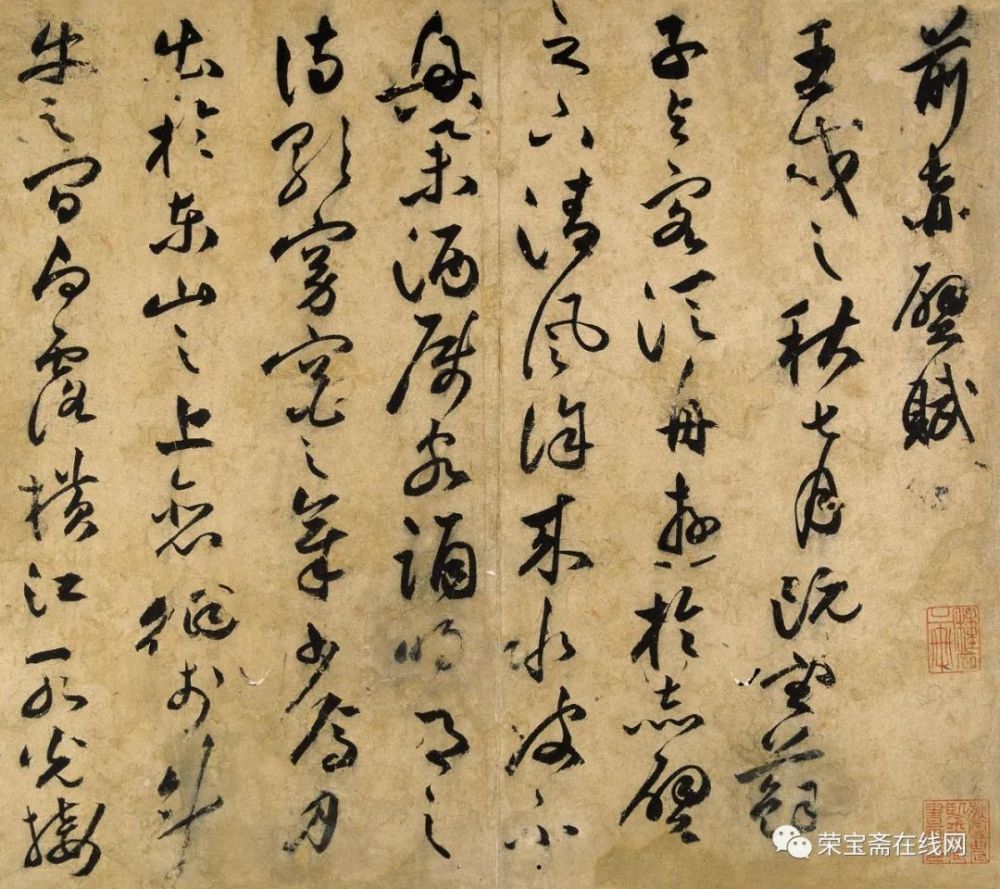 前赤壁賦
壬戌之秋七月既望蘇
子與客泛舟遊於赤壁
之下清風徐來水波不
興舉酒屬客誦明月之
詩歌窈窕之章少焉月
出於東山之上徘徊於斗
牛之間白露橫江水光接
荣宝斋在线网